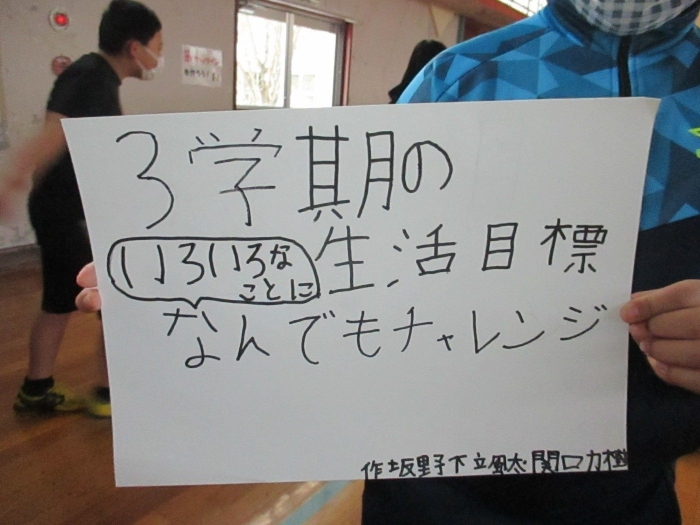 3学期の
生活目標
いろいろな
ことに
なんでもチャレンジ
作 坂野下立 関口力